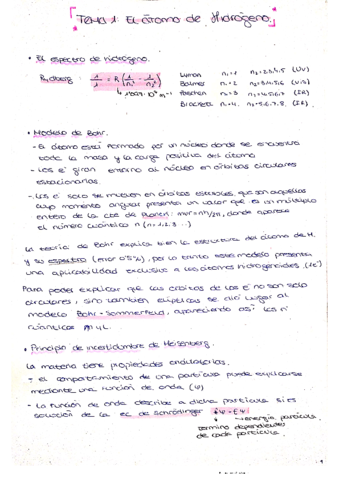 Tema 1 El átomo de Hidrógeno.
• El espectro de hidrógeno.
Rydberg 1/λ = R (1/n₁² - 1/n₂²) Lyman n₁=1 n₂=2,3,4,5 (UV)
Balmer n₁=2 n₂=3,4,5,6 (VIS)
Paschen n₁=3 n₂=4,5,6,7 (IR)
Brackett n₁=4 n₂=5,6,7,8 (IR)
• Modelo de Bohr.
- El átomo está formado por un núcleo donde se encuentra
toda la masa y la carga positiva del átomo
- Los e⁻ giran entorno al núcleo en órbitas circulares
estacionarias.
- Los e⁻ solo se mueven en órbitas estables, que son aquellas
cuyo momento angular presentan un valor que es un múltiplo
entero de la cte de Planck: mvr=nh/2π, donde aparece
el número cuántico n (n=1,2,3...)
La teoría de Bohr explica bien la estructura del átomo de H,
y su espectro (error 0'5%), por lo tanto este modelo presenta
una aplicabilidad exclusiva a los átomos hidrogenoides. (1e⁻)
Para poder explicar que las órbitas de los e⁻ no son solo
circulares, sino también elípticas se dió lugar al
modelo Bohr-Sommerfeld, apareciendo así los nº
cuánticos m y L.
• Principio de incertidumbre de Heisenberg.
La materia tiene propiedades ondulatorias.
- El comportamiento de una partícula puede explicarse
mediante una función de onda (Ψ)
- La función de onda describe a dicha partícula si es
solución de la ec de Schrödinger ĤΨ=EΨ
energía partícula
término dependiente
de cada partícula